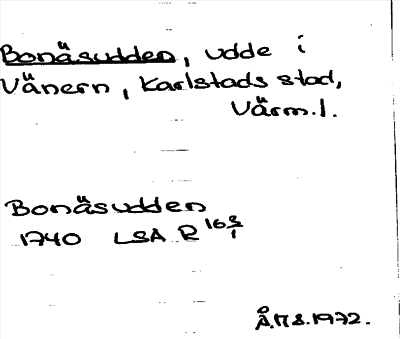 Bonäsudden, udde i
Vänern, Karlstads stad,
Värm.l.
Bonäsudden
1740 LSA R 16 9/1
Å.M.S.1972.